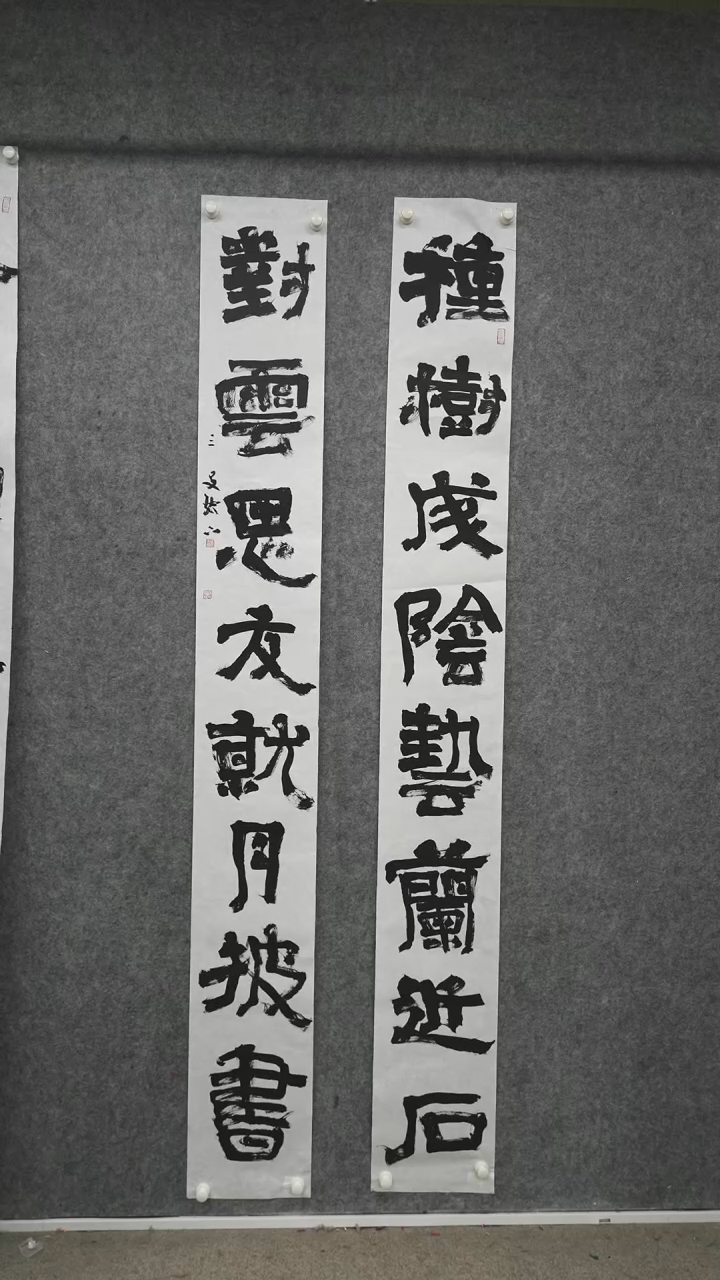 種樹成陰藝蘭近石
對雲思友就月披書